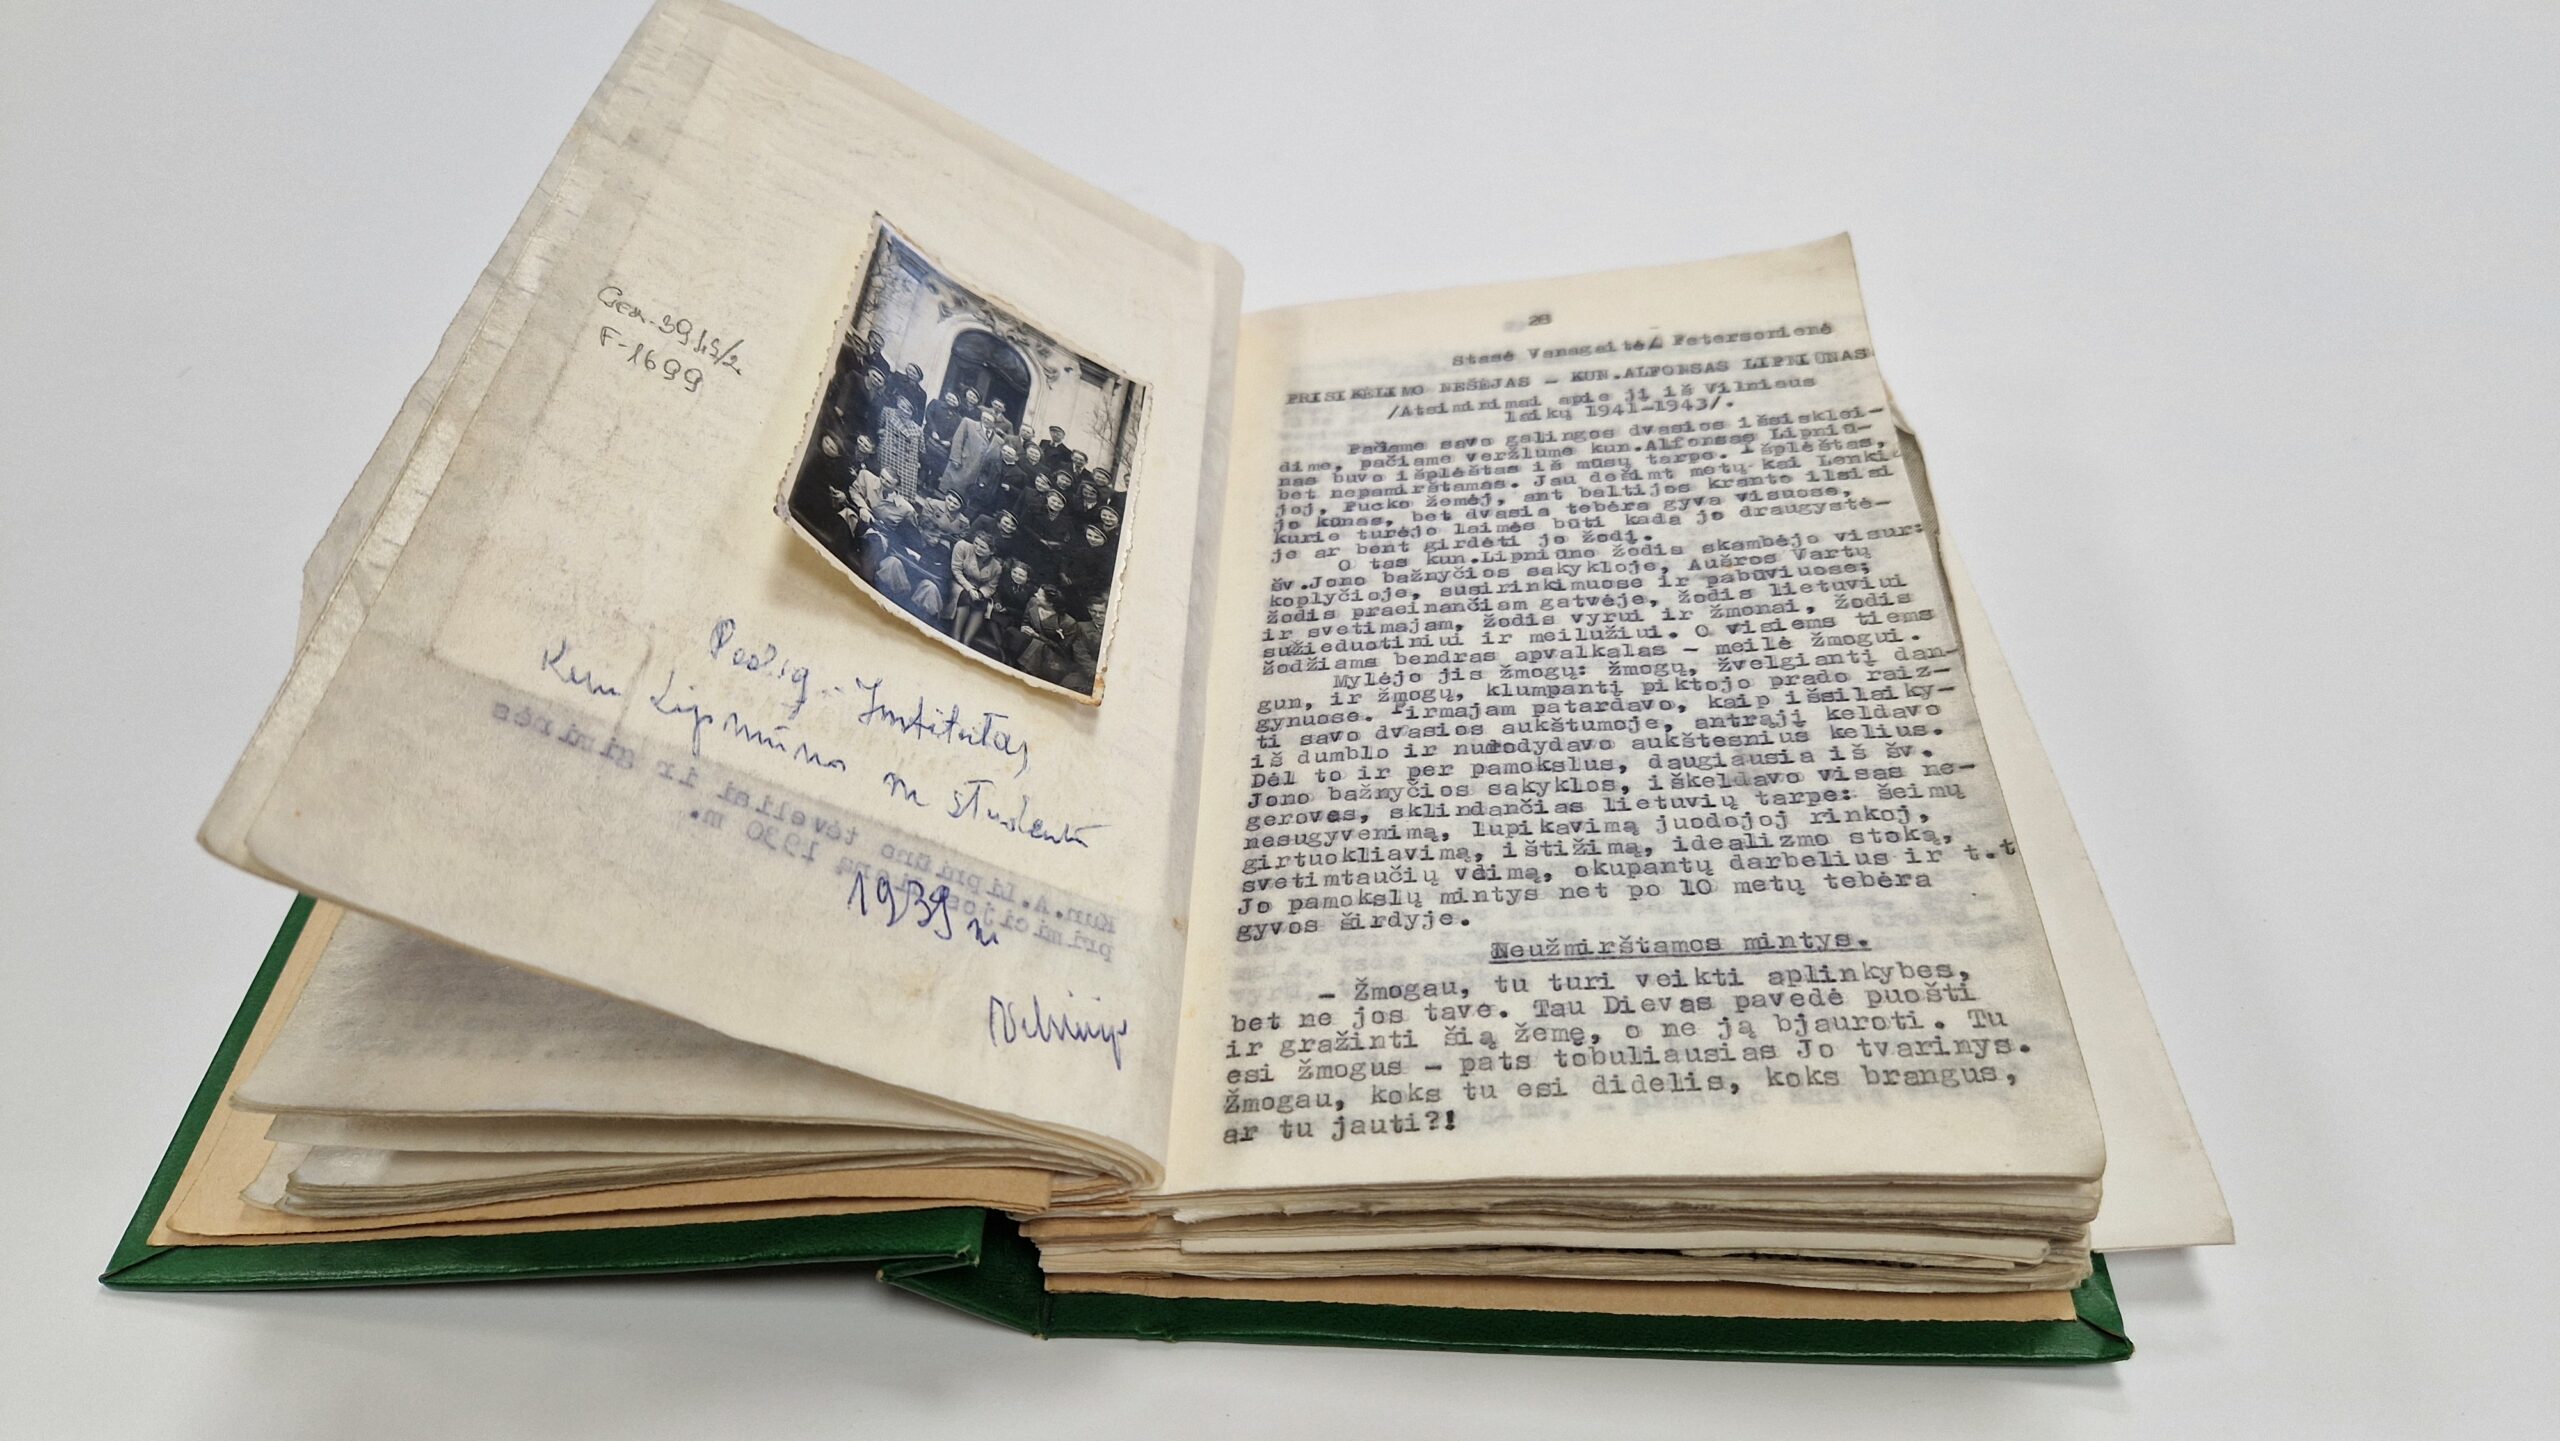 F-1699
Pedag. Institutas,
Kun Lipniūno m studentų
1939 m
Vilniuje
Kun.A.Lipniūno tėveliai ir giminės
primicijos 1930 m.
28
Stasė Vanagaitė/ Petersonienė
PRISIKĖLIMO NEŠĖJAS - KUN.ALFONSAS LIPNIŪNAS
/Atsiminimai apie jį iš Vilniaus
laikų 1941-1943/.
Pačame savo galingos dvasios išsisklei-
dime, pačiame veržlume kun.Alfonsas Lipniū-
nas buvo išplėštas iš mūsų tarpo. Išplėštas,
bet nepamirštamas. Jau dešimt metų kai Lenki-
joj, Pucko žemėj, ant baltijos kranto ilsisi
jo kūnas, bet dvasia tebėra gyva visuose,
kurie turėjo laimės būti kada jo draugystė-
je ar bent girdėti jo žodį.
O tas kun.Lipniūno žodis skambėjo visur:
šv.Jono bažnyčios sakykloje, Aušros Vartų
koplyčioje, susirinkimuose ir pabūviuose;
žodis praeinančiam gatvėje, žodis lietuviui
ir svetimajam, žodis vyrui ir žmonai, žodis
sužieduotiniui ir meilužiui. O visiems tiems
žodžiams bendras apvalkalas - meilė žmogui.
Mylėjo jis žmogų: žmogų, žvelgiantį dan-
gun, ir žmogų, klumpantį piktojo prado raiz-
gynuose. Pirmajam patardavo, kaip išsilaiky-
ti savo dvasios aukštumoje, antrąjį keldavo
iš dumblo ir nurodydavo aukštesnius kelius.
Dėl to ir per pamokslus, daugiausia iš šv.
Jono bažnyčios sakyklos, iškeldavo visas ne-
geroves, sklindančias lietuvių tarpe: šeimų
nesugyvenimą, lupikavimą juodojoj rinkoj,
girtuokliavimą, ištižimą, idealizmo stoką,
svetimtaučių vaimą, okupantų darbelius ir t.t
Jo pamokslų mintys net po 10 metų tebėra
gyvos širdyje.
Neužmirštamos mintys.
- Žmogau, tu turi veikti aplinkybes,
bet ne jos tave. Tau Dievas pavedė puošti
ir gražinti šią žemę, o ne ją bjauroti. Tu
esi žmogus - pats tobuliausias Jo tvarinys.
Žmogau, koks tu esi didelis, koks brangus,
ar tu jauti?!